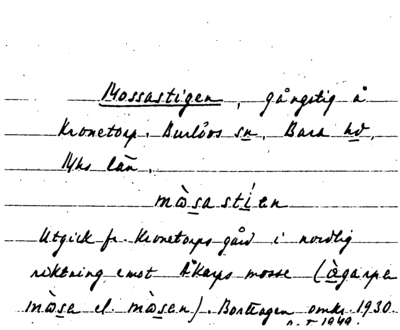 Mossastigen, gångstig å
Kronetorp. Burlövs sn, Bara hd,
Mhs län.
mòsastíen
Utgick fr. Kronetorps gård i nordlig
riktning emot Åkarps mosse (ògarpa
mòsa el. mòsen). Borttagen omkr. 1930.
1949.